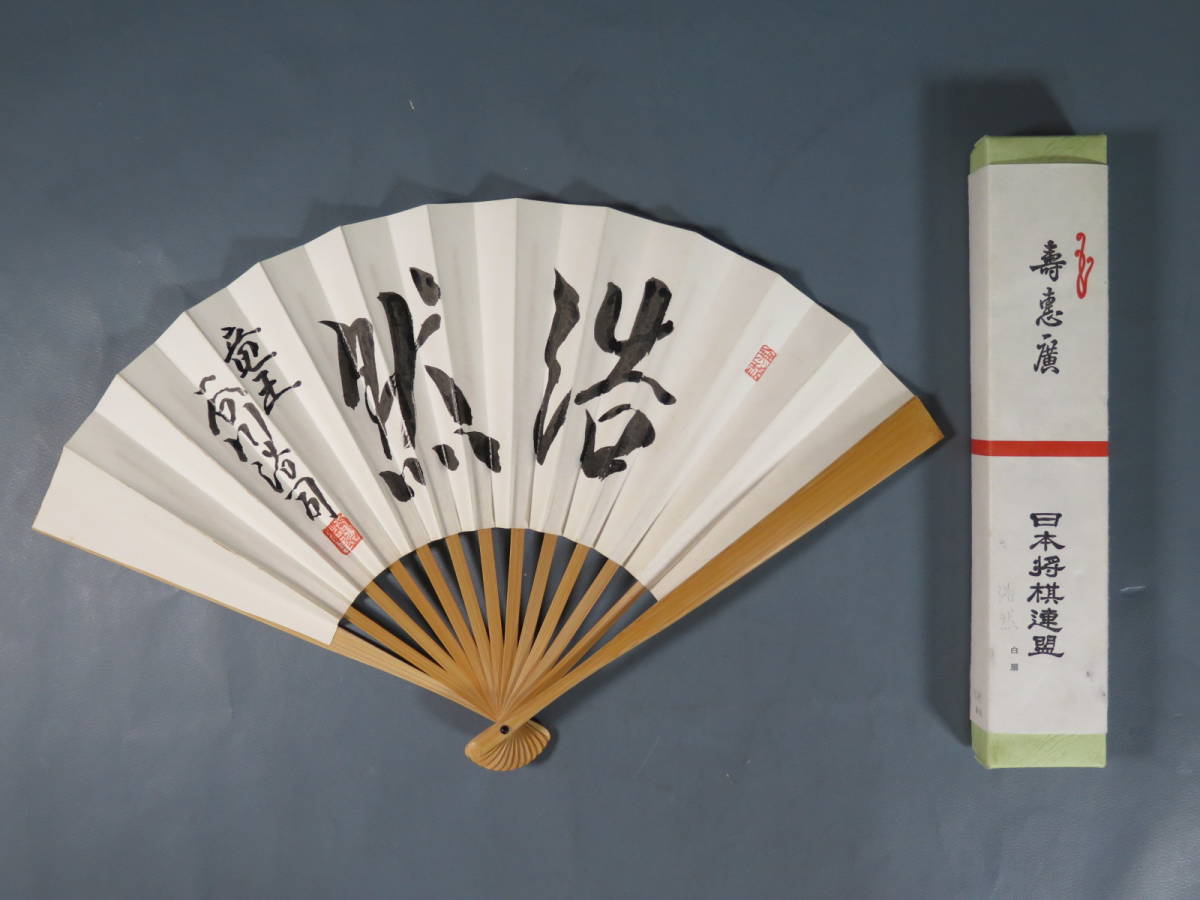 浩然
竜王
谷川浩司
壽恵廣
日本将棋連盟
浩然
白扇